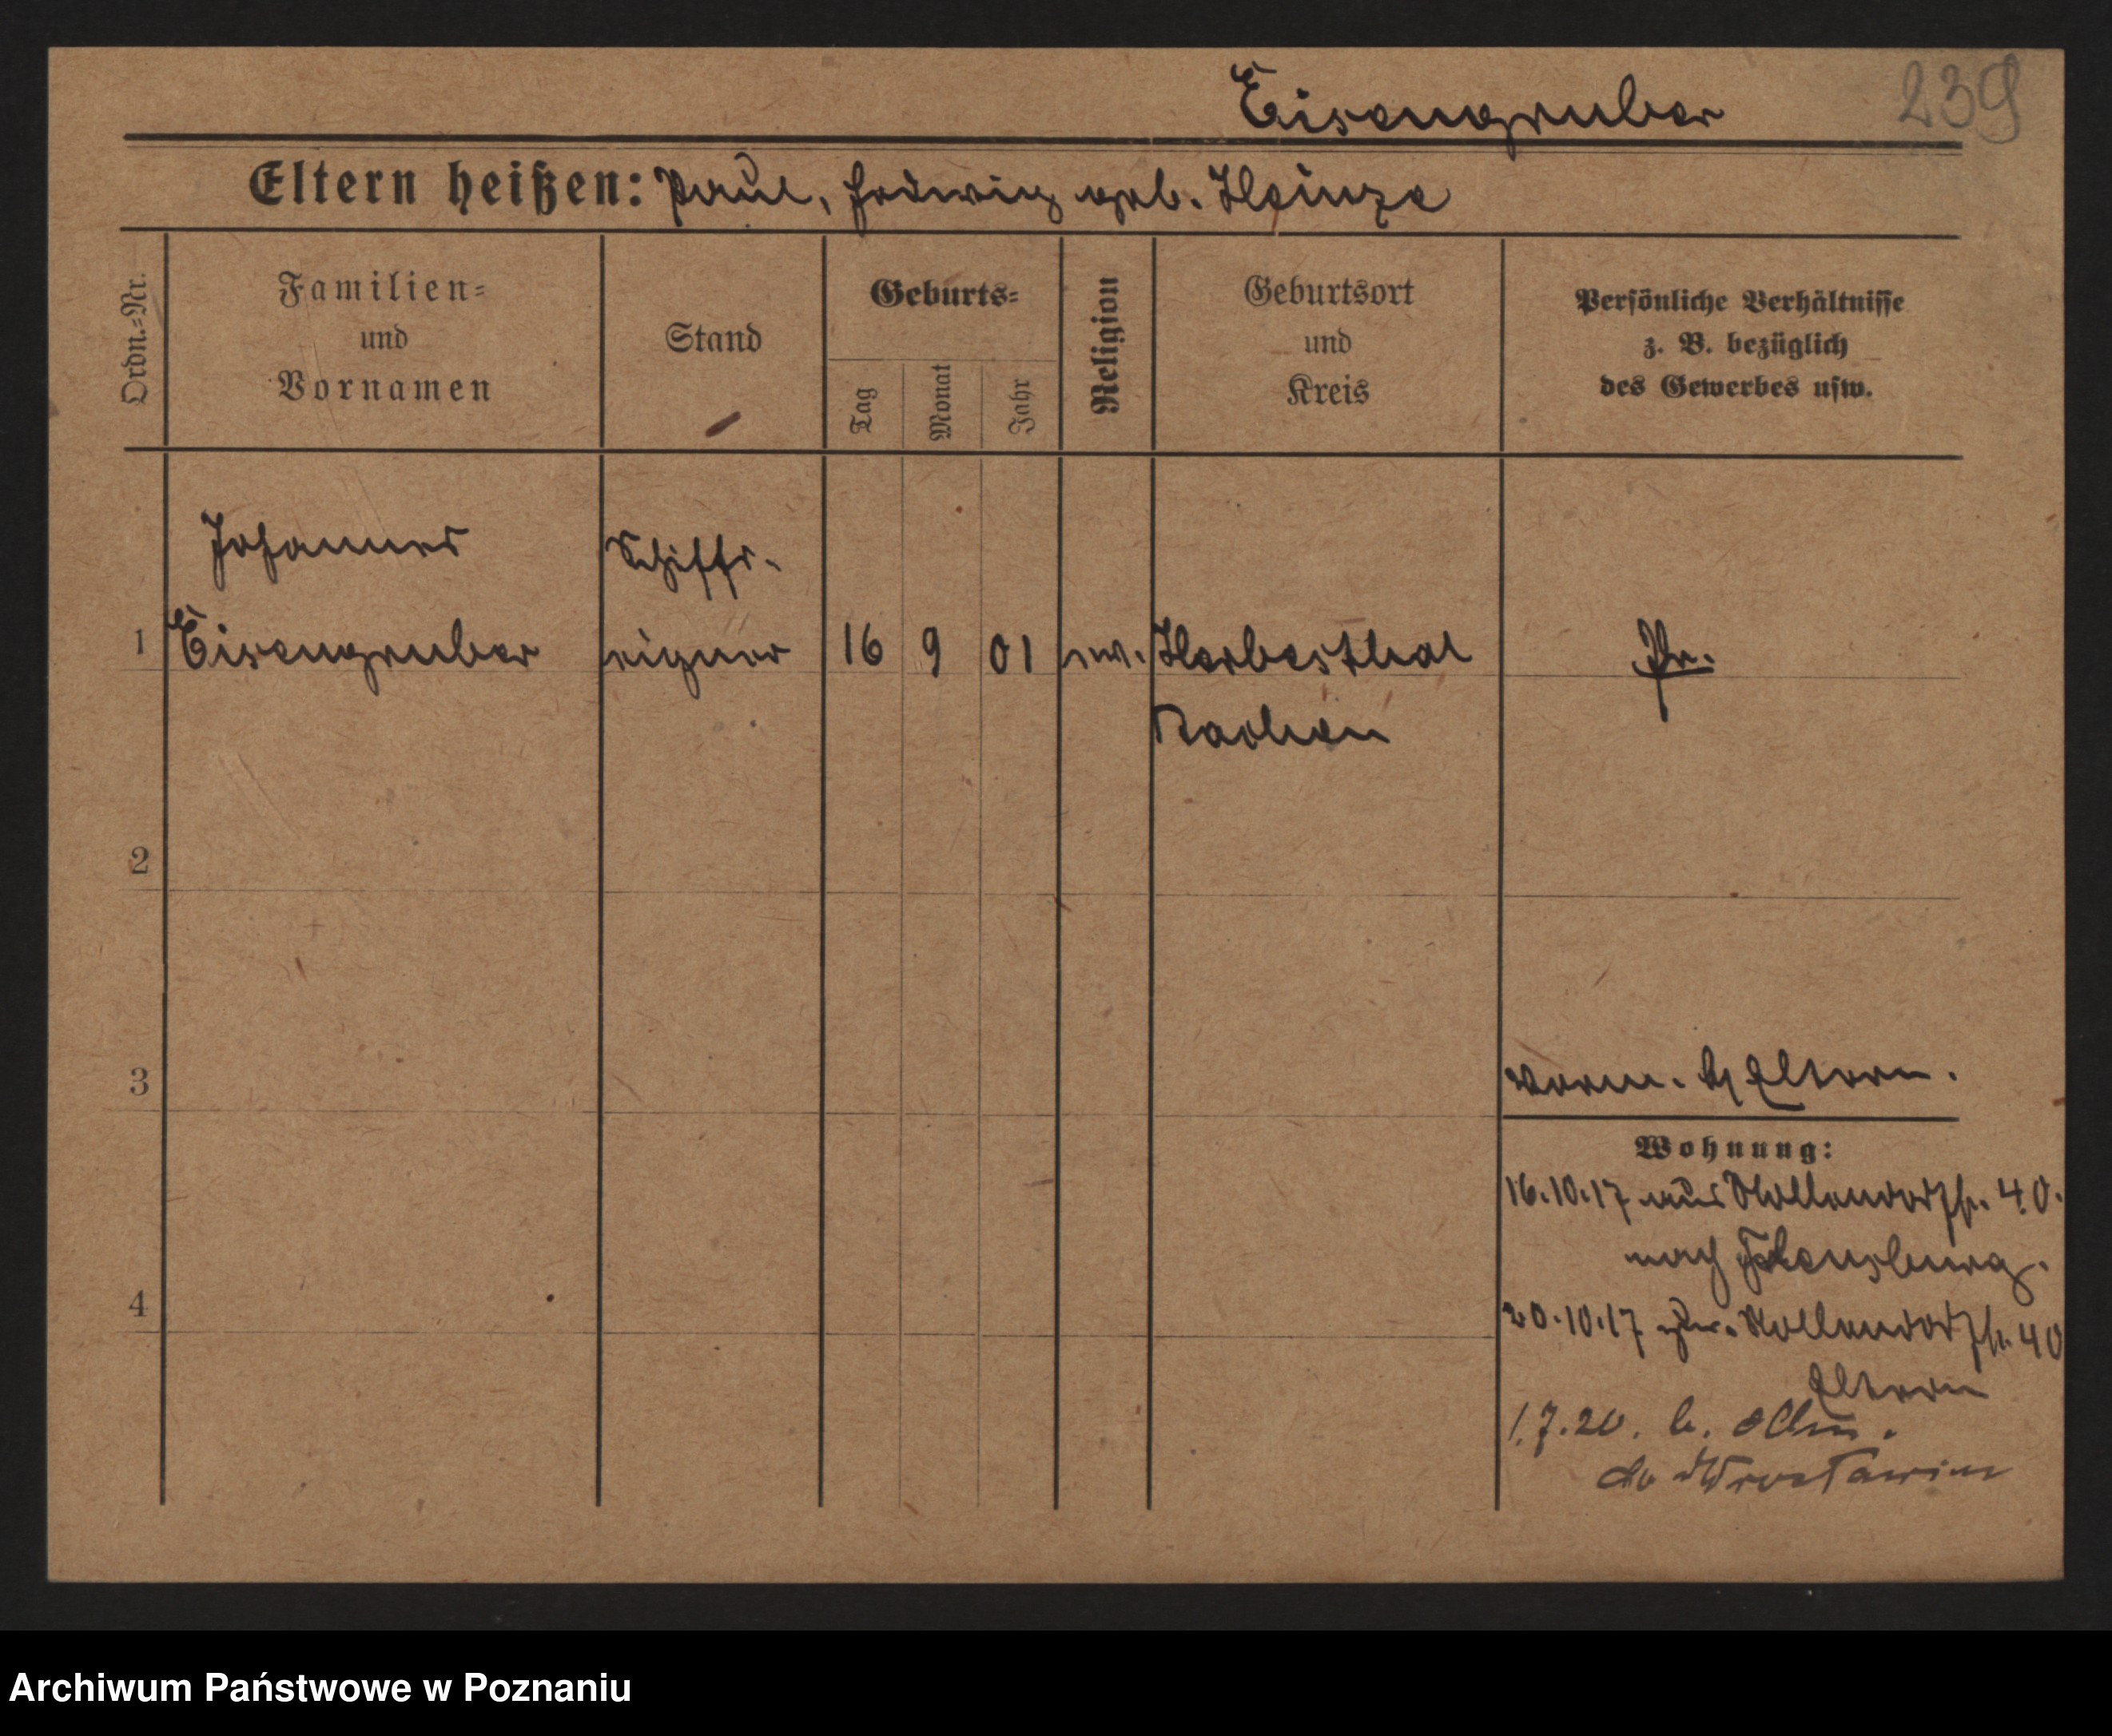 Eisengruber
239
Eltern heißen: Paul, Hedwig geb. Heinze
Ordn.-Nr.
Familien- und Vornamen
Stand
Geburts-
Tag
Monat
Jahr
Religion
Geburtsort und Kreis
Persönliche Verhältnisse z. B. bezüglich des Gewerbes usw.
Johannes
Schiffs-
1 Eisengruber
eigner
16 9 01 ev. Herbesthal
Pr.
Aachen
2
3
vorm. b/ Eltern.
Wohnung:
16.10.17 aus Nollendorfstr. 40.
nach Flensburg.
4
20.10.17 Nollendorfstr. 40
Eltern
1.7.20. b.
Archiwum Państwowe w Poznaniu